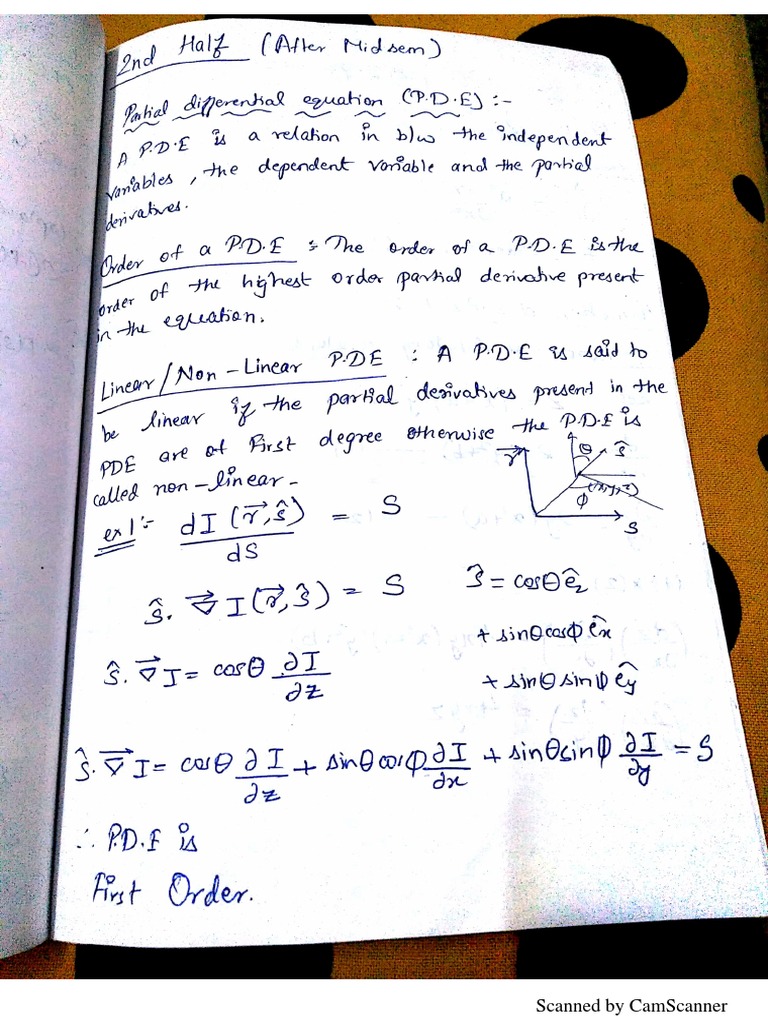 2nd Half (After Midsem)
Partial differential equation (P.D.E) :-
A P.D.E is a relation in b/w the independent
variables, the dependent variable and the partial
derivatives.
Order of a P.D.E : The order of a P.D.E is the
order of the highest order partial derivative present
in the equation.
Linear/Non-Linear PDE : A P.D.E is said to
be linear if the partial derivatives present in the
PDE are of First degree otherwise the P.D.E is
called non-linear.
r⃗ θ ŝ (x,y,z) φ s
ex1:- dI(r⃗,ŝ)/dS = S
ŝ.∇⃗I(r⃗,ŝ) = S
ŝ = cosθ êz
+ sinθcosφ êx
+ sinθsinφ êy
ŝ.∇⃗I = cosθ ∂I/∂z
ŝ.∇⃗I = cosθ ∂I/∂z + sinθcosφ ∂I/∂x + sinθsinφ ∂I/∂y = S
∴ P.D.E is
First Order.
Scanned by CamScanner